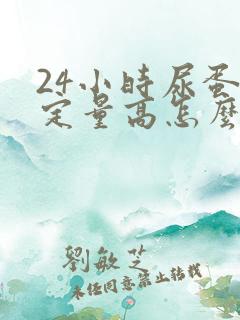 24小時尿蛋
定量高怎麼
劉敏芝
未经同意禁止转载